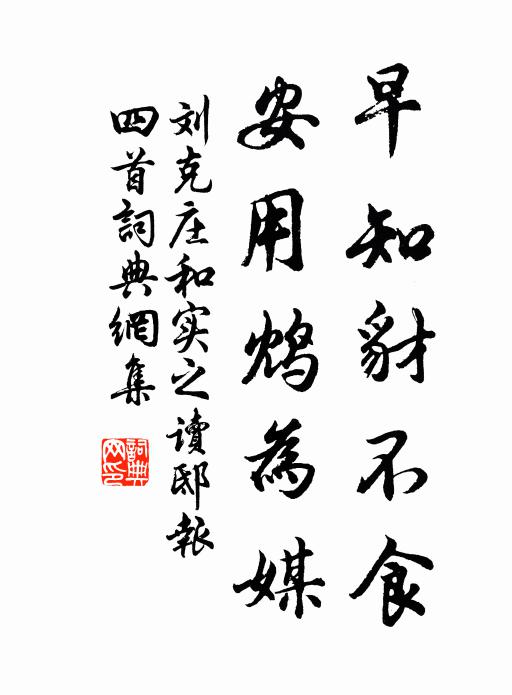 早知豺不食
安用鸩為媒
刘克庄和实之讀邸報
四首詞典網集
詞典
网印